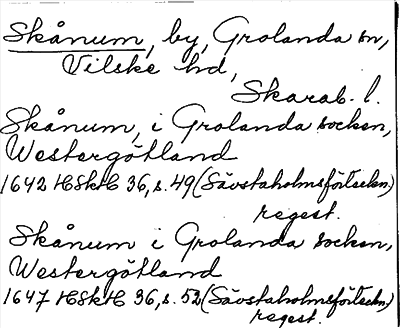 Skånum, by, Grolanda sn,
Vilske hd,
Skarab. l.
Skånum, i Grolanda socken,
Westergötland
1642 HSkH 36, s. 49 (Sävstaholmsförteckn.)
regest.
Skånum i Grolanda socken,
Westergötland
1647 HSkH 36, s. 52 (Sävstaholmsförteckn.)
regest.